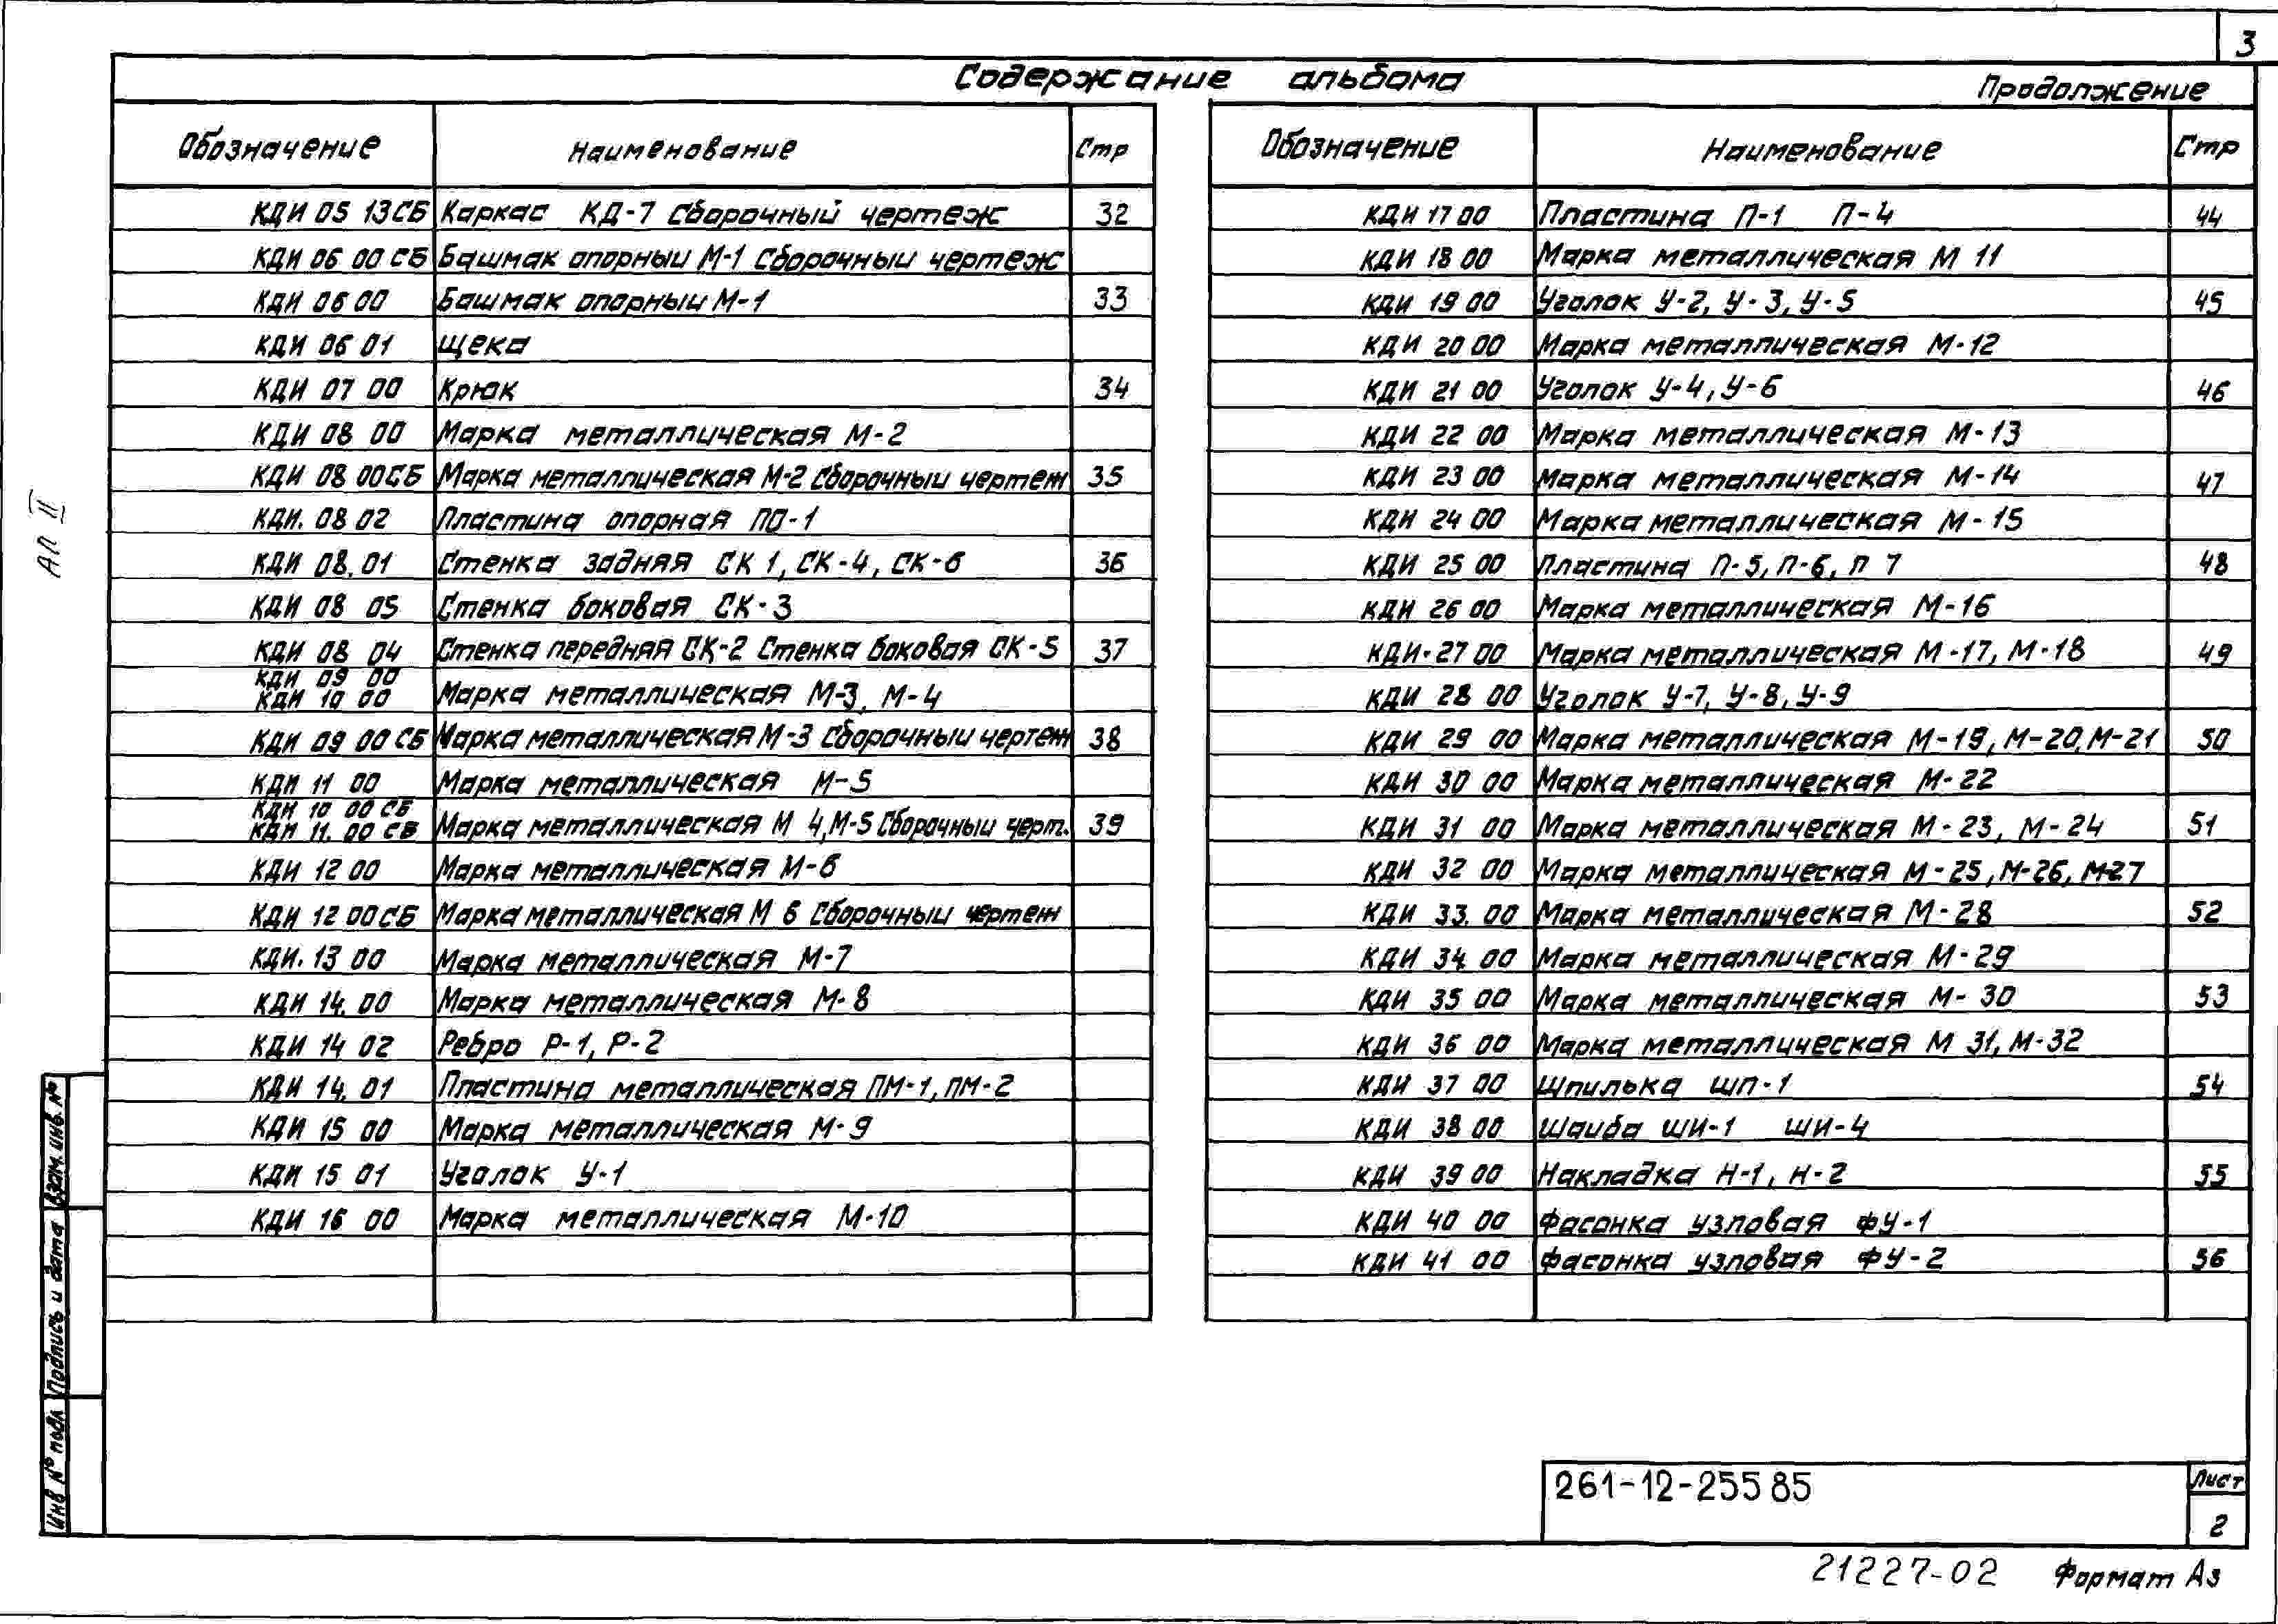 3
Содержание альбома
Продолжение
Обозначение Наименование Стр
КДИ 05 13СБ Каркас КД-7 Сборочный чертеж 32
КДИ 06 00 СБ Башмак опорный М-1 Сборочный чертеж
КДИ 06 00 Башмак опорный М-1 33
КДИ 06 01 Щека
КДИ 07 00 Крюк 34
КДИ 08 00 Марка металлическая М-2
КДИ 08 00СБ Марка металлическая М-2 Сборочный чертеж 35
КДИ. 08 02 Пластина опорная ПО-1
КДИ 08.01 Стенка задняя СК 1, СК-4, СК-6 36
КДИ 08 05 Стенка боковая СК-3
КДИ 08 04 Стенка передняя СК-2 Стенка боковая СК-5 37
КДИ 09 00
КДИ 10 00 Марка металлическая М-3, М-4
КДИ 09 00 СБ Марка металлическая М-3 Сборочный чертеж 38
КДИ 11 00 Марка металлическая М-5
КДИ 10 00 СБ
КДИ 11. 00 СБ Марка металлическая М 4, М-5 Сборочный черт. 39
КДИ 12 00 Марка металлическая М-6
КДИ 12 00СБ Марка металлическая М 6 Сборочный чертеж
КДИ. 13 00 Марка металлическая М-7
КДИ 14. 00 Марка металлическая М-8
КДИ 14 02 Ребро Р-1, Р-2
КДИ 14. 01 Пластина металлическая ПМ-1, ПМ-2
КДИ 15 00 Марка металлическая М-9
КДИ 15 01 Уголок У-1
КДИ 16 00 Марка металлическая М-10
Обозначение Наименование Стр
КДИ 17 00 Пластина П-1 П-4 44
КДИ 18 00 Марка металлическая М 11
КДИ 19 00 Уголок У-2, У-3, У-5 45
КДИ 20 00 Марка металлическая М-12
КДИ 21 00 Уголок У-4, У-6 46
КДИ 22 00 Марка металлическая М-13
КДИ 23 00 Марка металлическая М-14 47
КДИ 24 00 Марка металлическая М-15
КДИ 25 00 Пластина П-5, П-6, П 7 48
КДИ 26 00 Марка металлическая М-16
КДИ-27 00 Марка металлическая М-17, М-18 49
КДИ 28 00 Уголок У-7, У-8, У-9
КДИ 29 00 Марка металлическая М-19, М-20, М-21 50
КДИ 30 00 Марка металлическая М-22
КДИ 31 00 Марка металлическая М-23, М-24 51
КДИ 32 00 Марка металлическая М-25, М-26, М-27
КДИ 33. 00 Марка металлическая М-28 52
КДИ 34 00 Марка металлическая М-29
КДИ 35 00 Марка металлическая М-30 53
КДИ 36 00 Марка металлическая М 31, М-32
КДИ 37 00 Шпилька ШП-1 54
КДИ 38 00 Шайба ШИ-1 ШИ-4
КДИ 39 00 Накладка Н-1, Н-2 55
КДИ 40 00 Фасонка узловая ФУ-1
КДИ 41 00 Фасонка узловая ФУ-2 56
АЛ II
Взам. инв. №
Подпись и дата
Инв № подл
261-12-255 85
Лист
2
21227-02 Формат А3